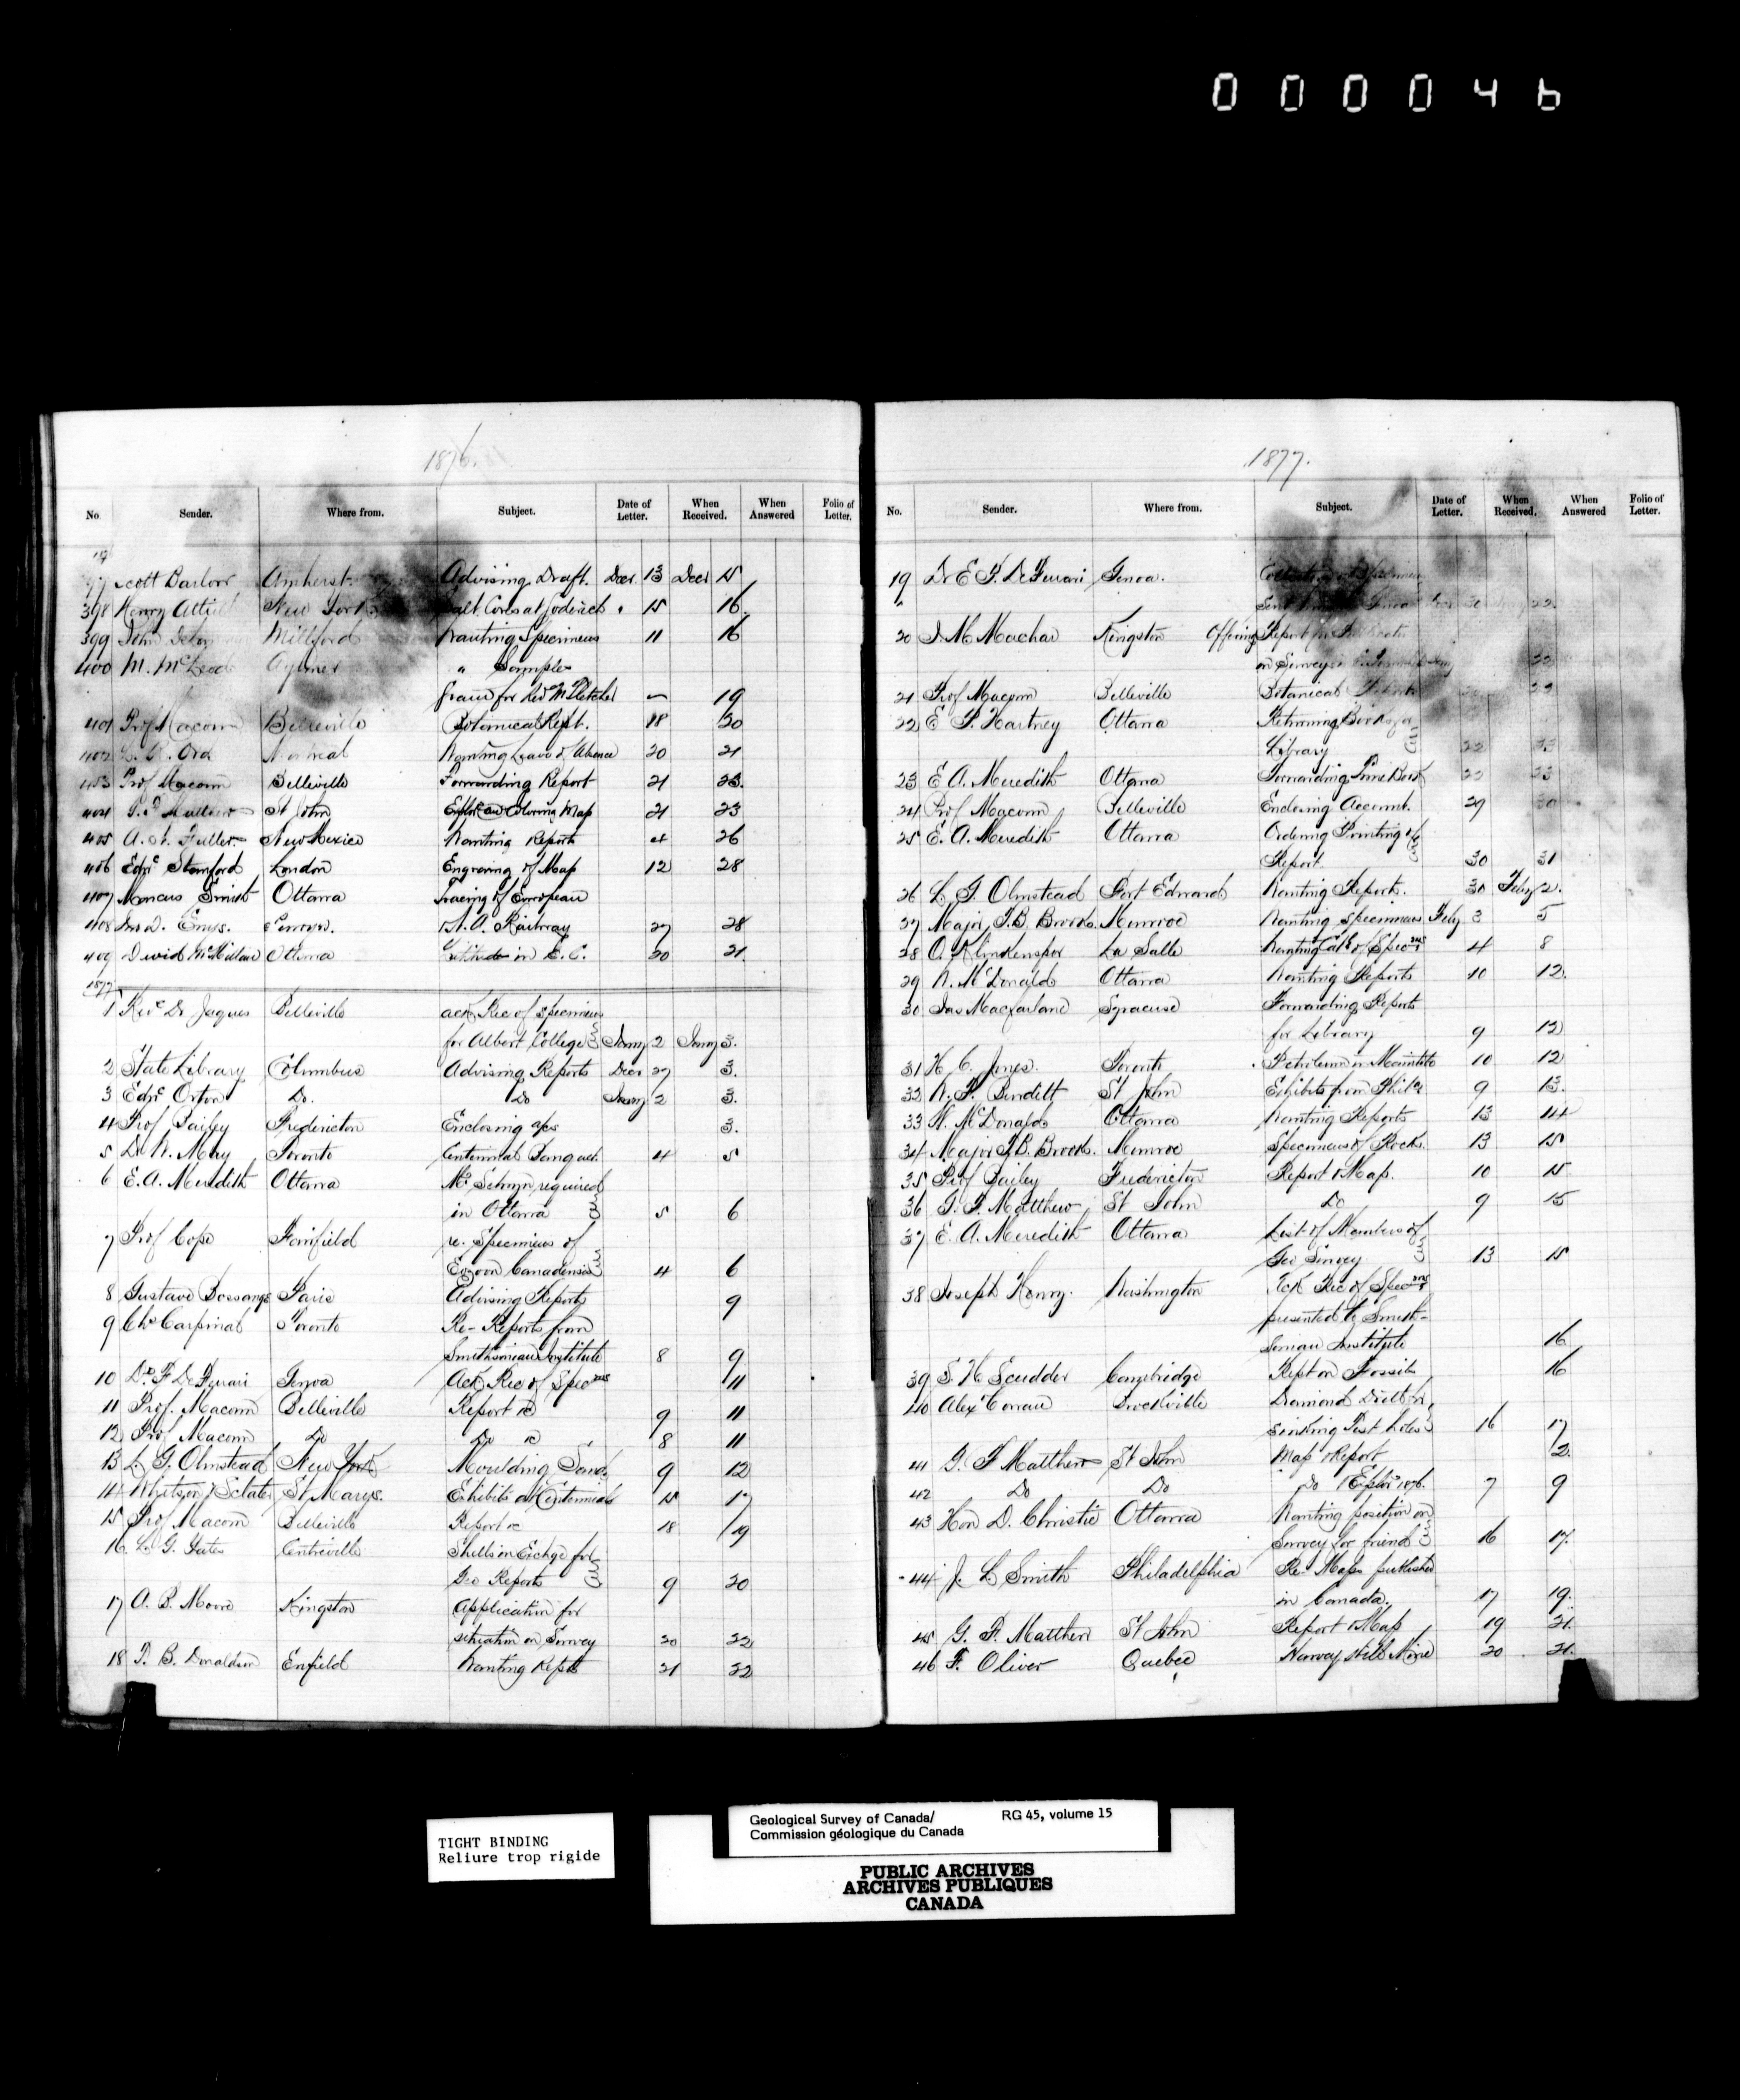 000046
1876.
No. Sender. Where from. Subject. Date of Letter. When Received. When Answered Folio of Letter.
97 Scott Barlow Amherst Advising Draft. Decr 13 Decr 15
398 Henry Attill New York Salt Cores at Goderich " 15 16.
399 John Millford Wanting Specimens 11 16
400 M. McLeod Aylmer " Samples
from for Revd Mr Fletcher 19
401 Prof Macoun Belleville Botanical Rept. 18 20
402 L. R. Ord Montreal Wanting Leave of Absence 20 21
403 Prof Macoun Belleville Forwarding Report 21 23.
404 G. F. Matthew St John Explor and Coloring Map 21 23
405 A. N. Fuller New Mexico Wanting Reports 4 26
406 Edwd Stanford London Engraving of Map 12 28
407 Marcus Smith Ottawa Tracing of European
408 Jno D. Evans N.A. Railway 27 28
409 David McMillan Ottawa in B.C. 20 21.
1877
1 Revd Dr Jaques Belleville ack Rec of Specimens
for Albert College Jany 2 Jany 3.
2 State Library Columbus Advising Reports Decr 27 3.
3 Edwd Orton Do. Do Jany 2 3.
4 Prof Bailey Fredericton Enclosing a/cs 3.
5 Dr W. May Toronto Centennial Banquet 4 5
6 E. A. Meredith Ottawa Mr Selwyn required
in Ottawa 5 6
7 Prof Cope Fairfield re. Specimens of
Eozoon Canadensis 4 6
8 Gustave Bossange Paris Advising Reports 9
9 Chs Carpmael Toronto Re- Reports from
Smithsonian Institute 8 9
10 Dr F De Ferrari Genoa Ack Rec of Specms 11
11 Prof. Macoun Belleville Report &c 9 11
12 Prof Macoun Do Do &c 8 11
13 L. G. Olmstead New York Moulding Sand. 9 12
14 Whitson & Sclater St Marys. Exhibits at Centennial 15 17
15 Prof Macoun Belleville Report &c 18 19
16 L. G. Yates Centreville Shells in Exchge for
Geo Reports 9 20
17 A. B. Moore Kingston Application for
situation on Survey 20 22
18 T. B. Donaldson Enfield Wanting Repts 21 22
1877.
No. Sender. Where from. Subject. Date of Letter. When Received. When Answered Folio of Letter.
19 Dr E F. De Ferrari Genoa. Collection of Specimens
" Sent Genoa 30 22
20 J. M Machar Kingston Offering Report for Publication
on Survey 22
21 Prof Macoun Belleville Botanical 22
22 E. P. Hartney Ottawa Returning Books for
Library 22 23
23 E. A. Meredith Ottawa Forwarding Time Book 22 23
24 Prof Macoun Belleville Enclosing Account. 29 30
25 E. A. Meredith Ottawa Ordering Printing of
Report 30 31
26 L. G. Olmstead Fort Edward Wanting Reports. 30 Feby 2.
27 Major T.B. Brooks. Munroe Wanting Specimens Feby 3 5
28 O. La Salle Wanting Colln of Specms 4 8
29 W. McDonald Ottawa Wanting Reports 10 12.
30 Jas Macfarlane Syracuse Forwarding Reports
for Library 9 12
31 H. C. Jones. Toronto Petroleum in Manitoulin 10 12
32 W. F. Burditt St John Exhibits from Phila 9 13.
33 W. McDonald Ottawa Wanting Reports 13 14
34 Major T.B. Brooks. Munroe Specimens of Rocks. 13 15
35 Prof Bailey Fredericton Report & Map. 10 15
36 G. F. Matthew St John Do 9 15
37 E. A. Meredith Ottawa List of Members of
Geo Survey 13 15
38 Joseph Henry. Washington Ack Rec of Specms
presented by Smith-
sonian Institute 16
39 S. H Scudder Cambridge Rept on Fossils 16
40 Alex Cowan Brockville Diamond Drill for
sinking Post holes 16 17
41 G. F Matthew St John Map & Report 2.
42 Do Do Do Explor 1876. 7 9
43 Hon D. Christie Ottawa Wanting position on
Survey for friend 16 17.
44 J. L Smith Philadelphia Re. Maps published
in Canada. 17 19.
45 G. F. Matthew St John Report & Map 19 21.
46 F. Oliver Quebec Harvey Hill Mine 20 21.
TIGHT BINDING
Reliure trop rigide
Geological Survey of Canada/ RG 45, volume 15
Commission géologique du Canada
PUBLIC ARCHIVES
ARCHIVES PUBLIQUES
CANADA